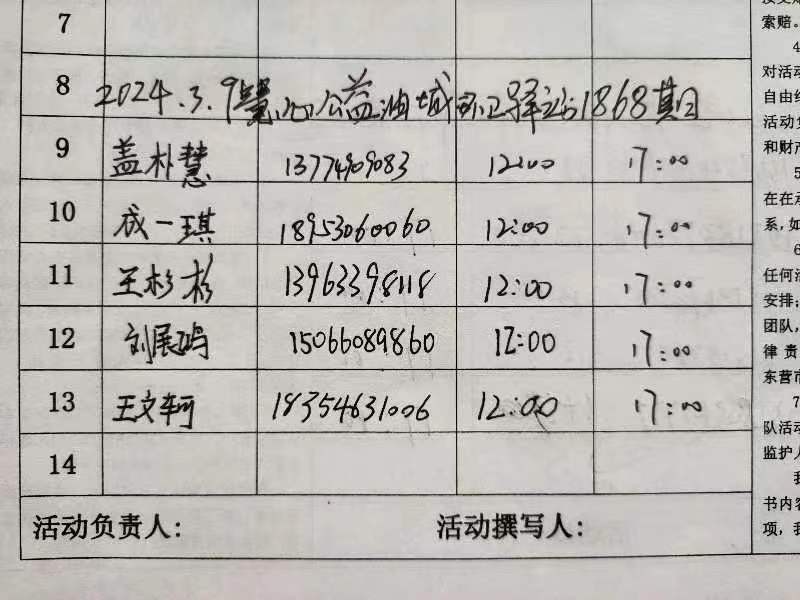 7
8 2024.3.9慧心公益油城环卫驿站1868期
9 盖朴慧 13774909083 12:00 17:00
10 成一琪 18953060060 12:00 17:00
11 王杉杉 13963398118 12:00 17:00
12 刘展鸣 15066089860 12:00 17:00
13 王文轲 18354631006 12:00 17:00
14
活动负责人: 活动撰写人:
索赔。
4
对活动
自由组
活动负
和财产
5
在在承
系,如
6
任何活
安排;
团队,
律责
东营市
7
队活动
监护人
我
书内容
项,我